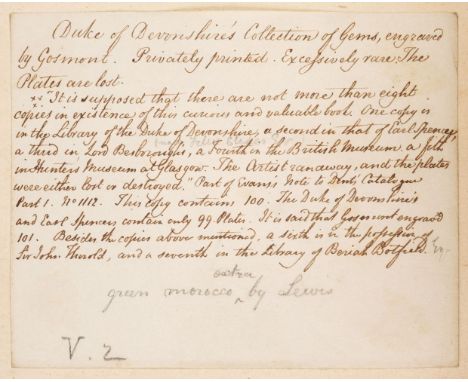 Duke of Devonshire's Collection of Gems, engraved
by Gosmont. Privately printed. Excessively rare. The
Plates are lost.
"It is supposed that there are not more than eight
copies in existence of this curious and valuable book. One copy is
in the Library of the Duke of Devonshire, a second in that of Earl Spencer,
a third in Lord Besborough's, a fourth in the British Museum, a fifth
in Hunter's Museum at Glasgow. The Artist ran away, and the plates
were either lost or destroyed." Part of Evans's Note to Dent's Catalogue
Part 1. No 1112. This copy contains 100. The Duke of Devonshire's
and Earl Spencer's contain only 99 Plates. It is said that Gosmont engraved
101. Besides the copies above mentioned, a sixth is in the possession of
Sir John Thorold, and a seventh in the Library of Beriah Botfield. Esq.
extra
green morocco ‸ by Lewis
V. 2